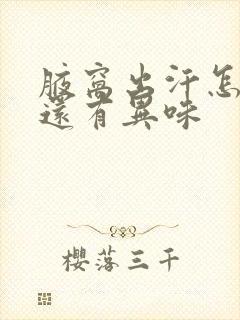 腋窩出汗怎
還有異味
櫻落三千